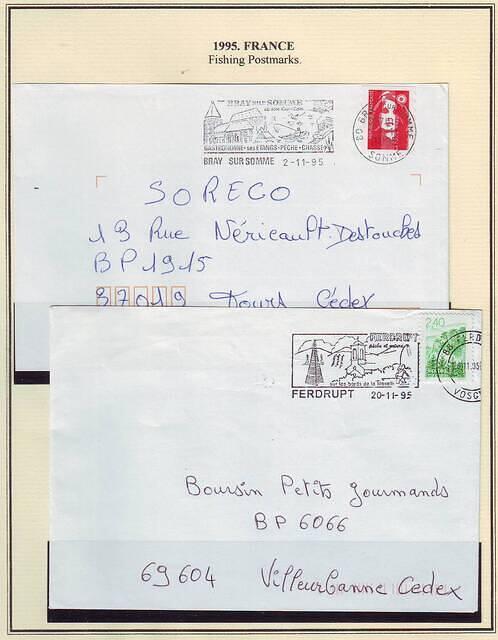 1995. FRANCE
Fishing Postmarks.
BRAY SUR SOMME
GASTRONOMIE - SES ETANGS - PÊCHE - CHASSE
BRAY SUR SOMME 2-11-95
SOMME
SOREGO
13 Rue Néricault-Destouches
BP1915
37019 Tours Cédex
FERDRUPT
pêche et nature
sur les bords de la Moselle
FERDRUPT 20-11-95
2,40
VOSGES
Boursin Petits gourmands
BP 6066
69604 Villeurbanne Cedex